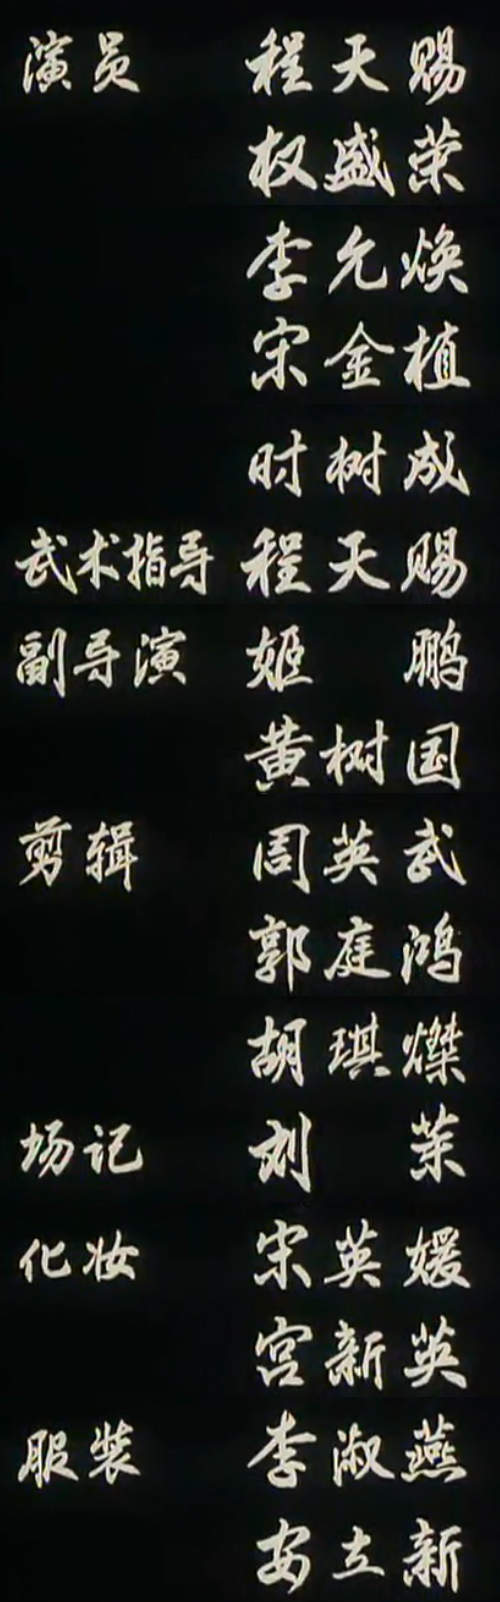 演员 程天赐
权盛荣
李允焕
宋金植
时树成
武术指导 程天赐
副导演 姬 鹏
黄树国
剪辑 周英武
郭庭鸿
胡琪燦
场记 刘 茉
化妆 宋英媛
宫新英
服装 李淑燕
安立新